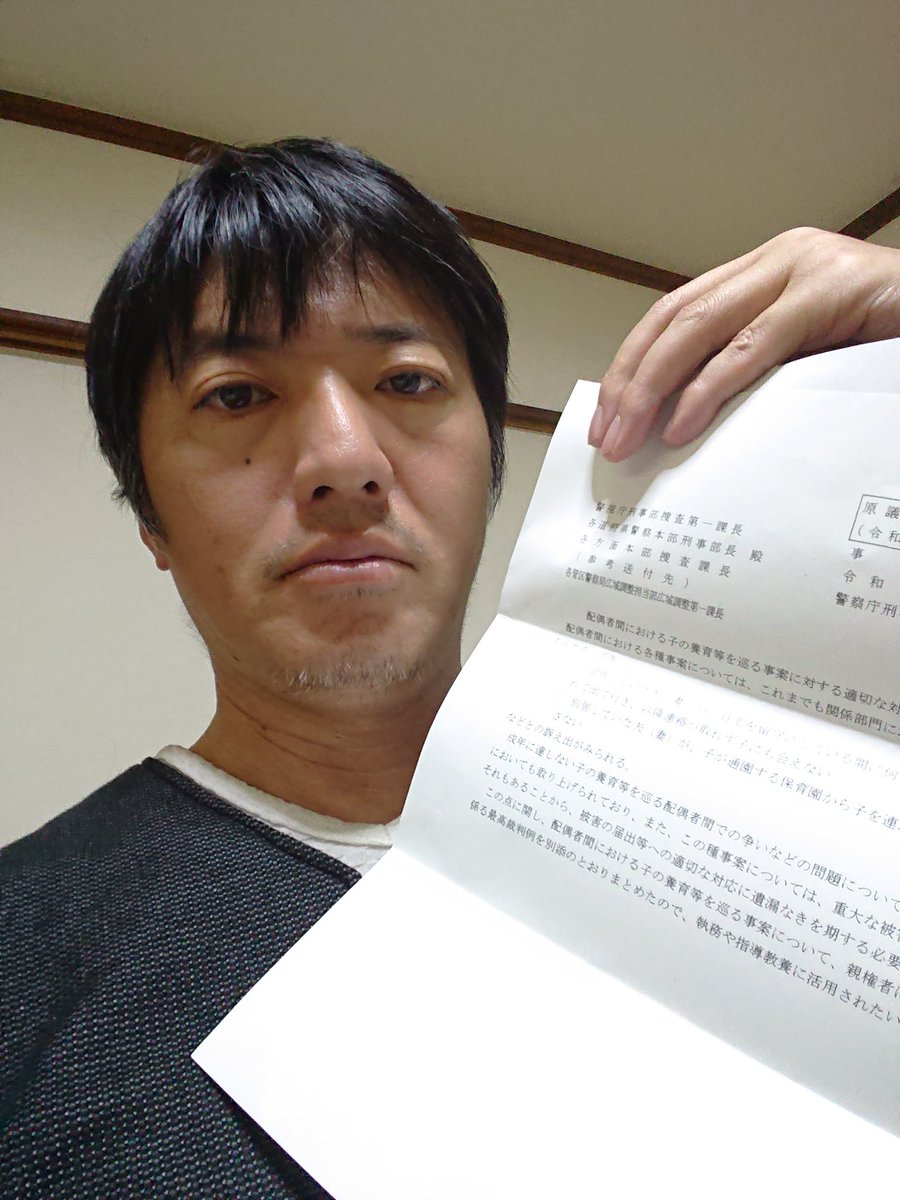 原議
(令和
警視庁刑事部捜査第一課長
各道府県警察本部刑事部長 殿
各方面本部捜査課長
(参考送付先)
各管区警察局広域調整担当部広域調整第一課長
事
令和
警察庁刑
配偶者間における子の養育等を巡る事案に対する適切な対
配偶者間における各種事案については、これまでも関係部門に
ている間に何
れて出て行き、以降連絡が取れず子にも会えない
別居していた夫(妻)が、子が通園する保育園から子を連
さない
などの訴え出がみられる。
成年に達しない子の養育等を巡る配偶者間での争いなどの問題につい
においても取り上げられており、また、この種事案については、重大な被害
それもあることから、被害の届出等への適切な対応に遺漏なきを期する必要
この点に関し、配偶者間における子の養育等を巡る事案について、親権者に
係る最高裁判例を別添のとおりまとめたので、執務や指導教養に活用されたい